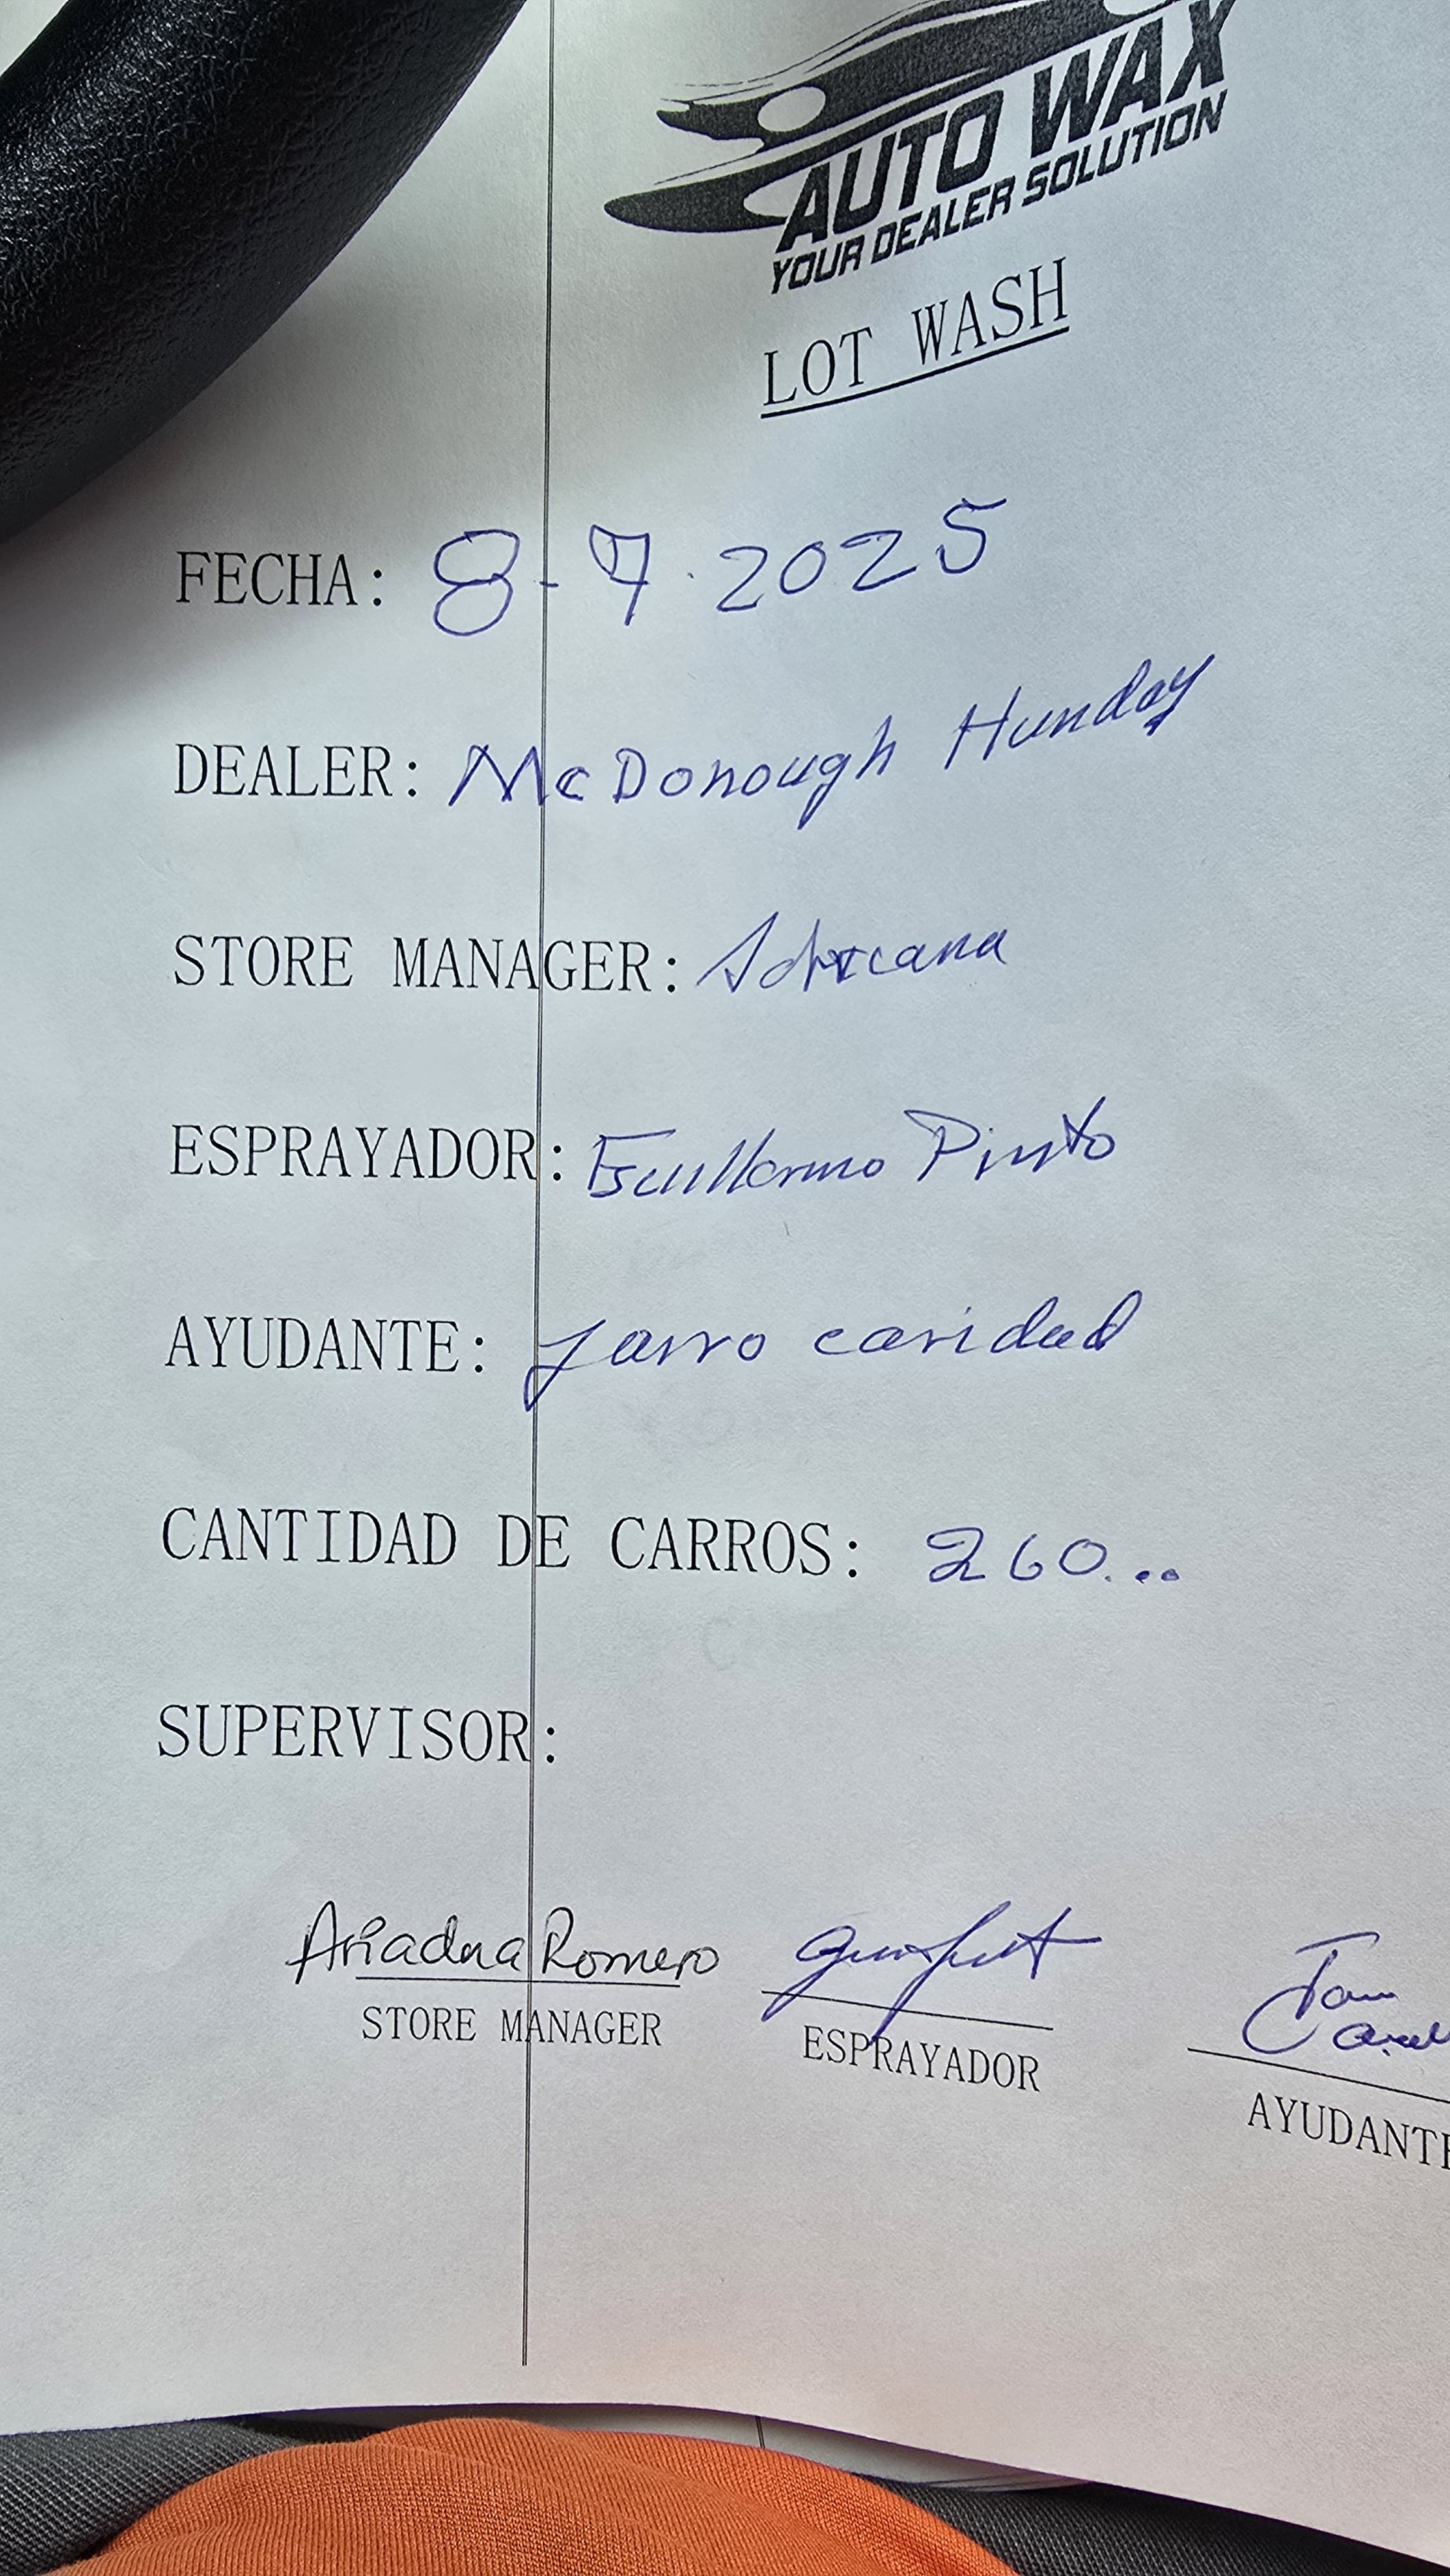 AUTO WAX
YOUR DEALER SOLUTION
LOT WASH
FECHA: 8-7.2025
DEALER: McDonough Hunday
STORE MANAGER:
ESPRAYADOR: Guillermo Pinto
AYUDANTE: Jarro caridad
CANTIDAD DE CARROS: 260...
SUPERVISOR:
Ariadna Romero
STORE MANAGER
ESPRAYADOR
AYUDANTE